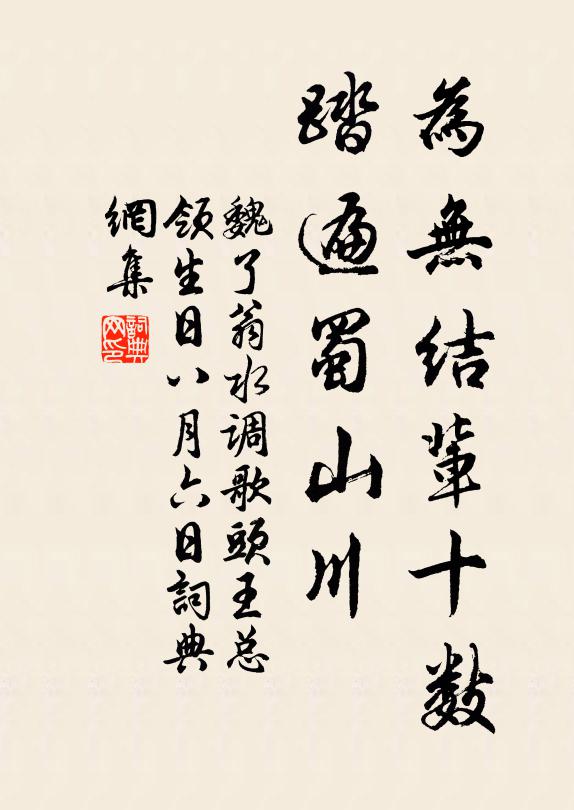 為無結輩十數
踏遍蜀山川
魏了翁水调歌頭王总
领生日八月六日詞典
網集
詞典网印